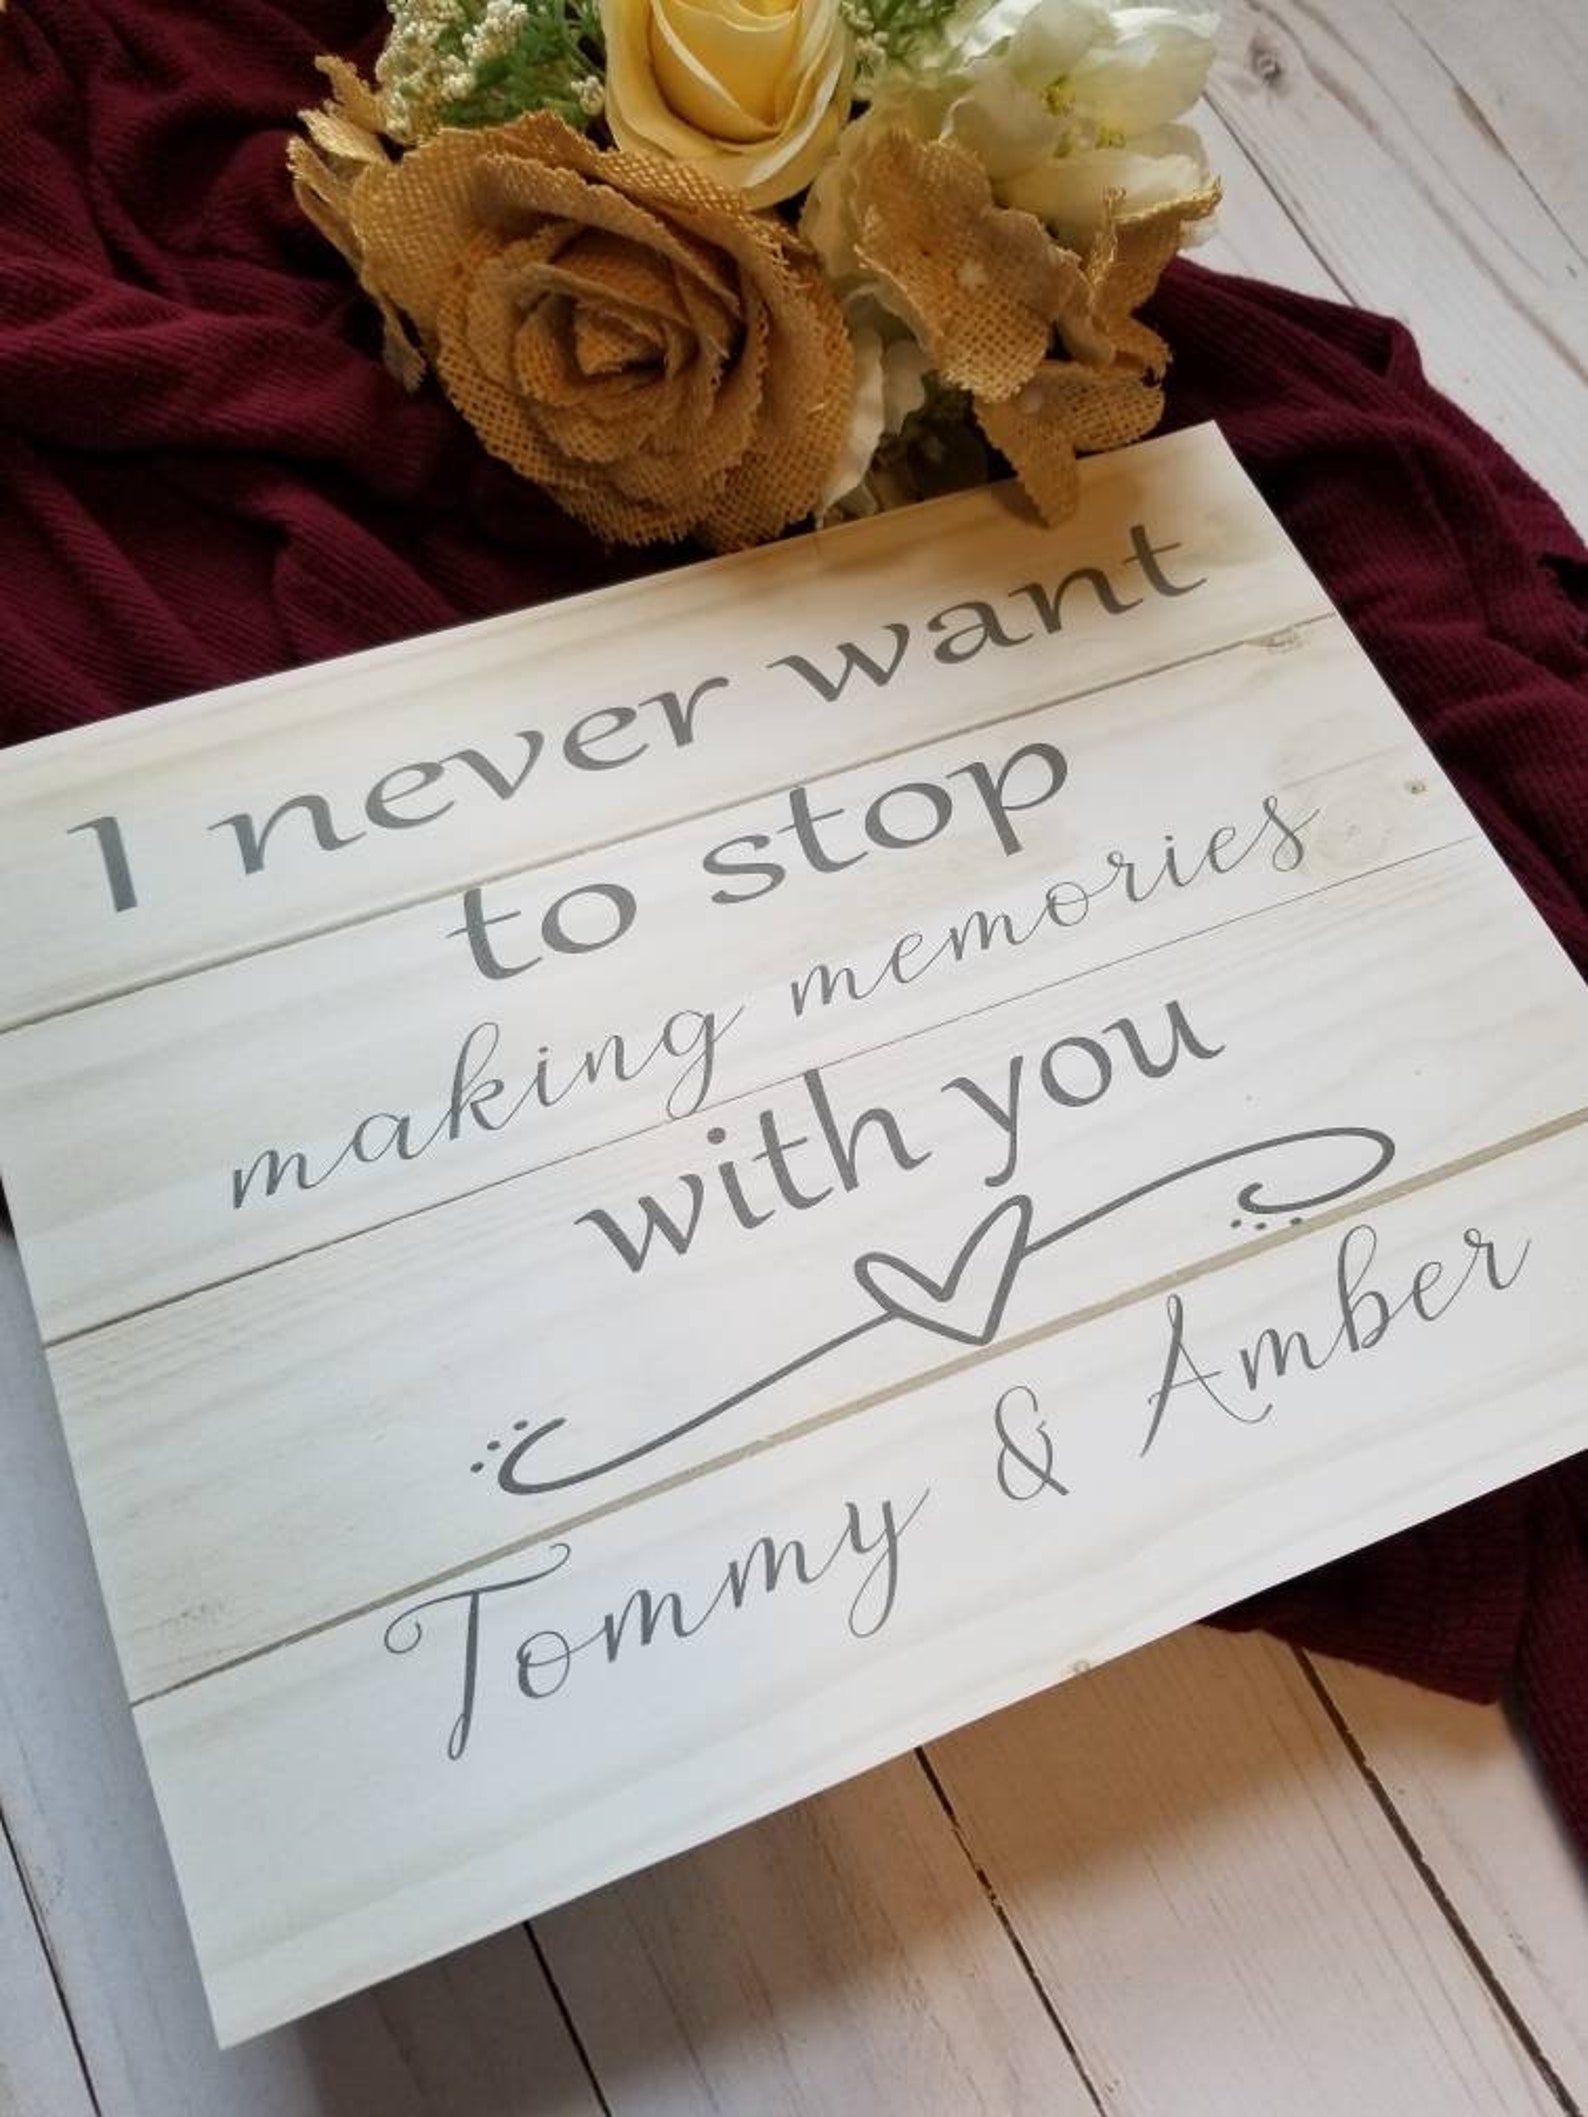 I never want
to stop
making memories
with you
Tommy & Amber